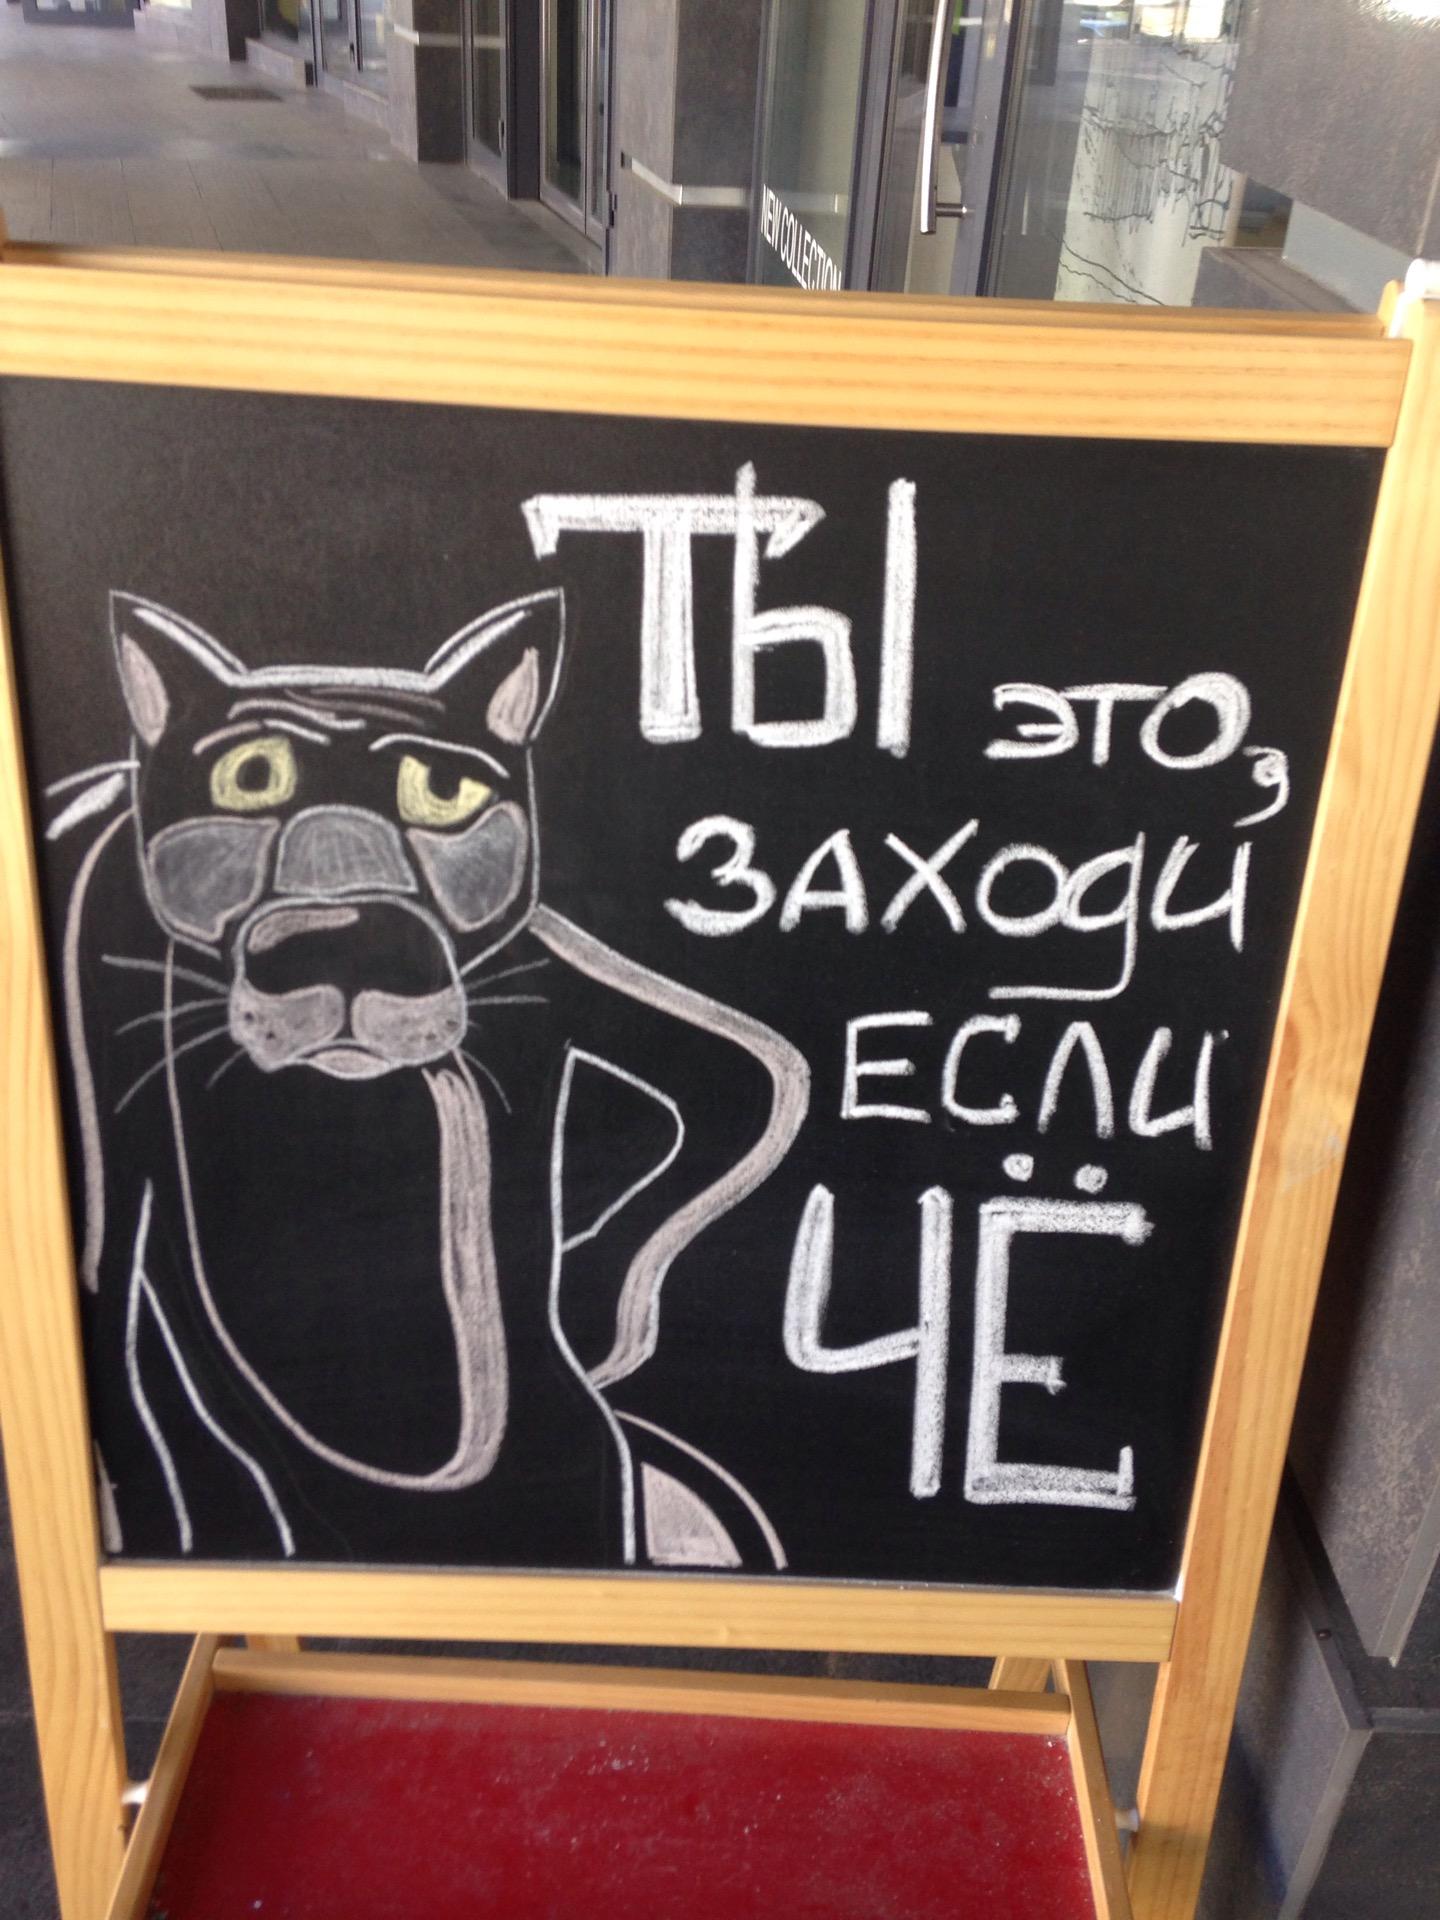 NEW COLLECTION
ТЫ это,
ЗАХОДИ
ЕСЛИ
ЧЁ